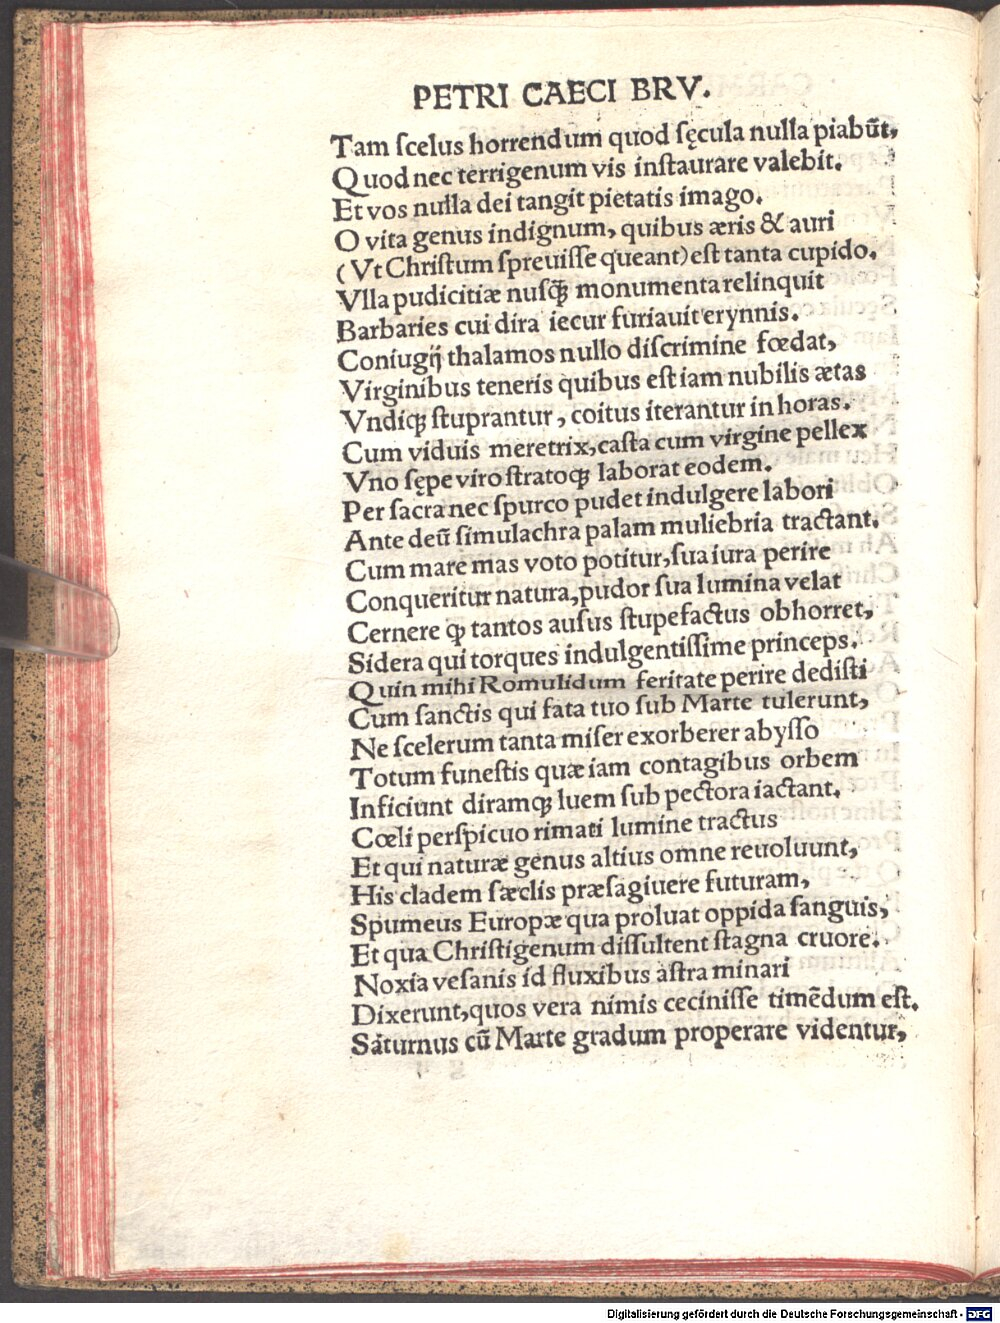 PETRI CAECI BRV.
Tam ſcelus horrendum quod ſęcula nulla piabūt,
Quod nec terrigenum vis inſtaurare valebit.
Et vos nulla dei tangit pietatis imago.
O vita genus indignum, quibus æris & auri
(Vt Chriſtum ſpreuiſſe queant) eſt tanta cupido.
Vlla pudicitiæ nuſq̄ꝫ monumenta relinquit
Barbaries cui dira iecur furiauit erynnis.
Coniugĳ thalamos nullo diſcrimine fœdat,
Virginibus teneris quibus eſt iam nubilis ætas
Vndiqꝫ ſtuprantur, coitus iterantur in horas.
Cum viduis meretrix, caſta cum virgine pellex
Vno ſępe viro ſtratoqꝫ laborat eodem.
Per ſacra nec ſpurco pudet indulgere labori
Ante deū ſimulachra palam muliebria tractant.
Cum mare mas voto potitur, ſua iura perire
Conqueritur natura, pudor ſua lumina velat
Cernere qꝫ tantos auſus ſtupefactus obhorret,
Sidera qui torques indulgentiſſime princeps.
Quin mihi Romulidum feritate perire dediſti
Cum ſanctis qui fata tuo ſub Marte tulerunt,
Ne ſcelerum tanta miſer exorberer abyſſo
Totum funeſtis quæ iam contagibus orbem
Inficiunt diramqꝫ luem ſub pectora iactant.
Cœli perſpicuo rimati lumine tractus
Et qui naturæ genus altius omne reuoluunt,
His cladem ſæclis præſagiuere futuram,
Spumeus Europæ qua proluat oppida ſanguis,
Et qua Chriſtigenum diſſultent ſtagna cruore.
Noxia veſanis id fluxibus aſtra minari
Dixerunt, quos vera nimis ceciniſſe timēdum eſt.
Saturnus cū Marte gradum properare videntur,
Digitalisierung gefördert durch die Deutsche Forschungsgemeinschaft - DFG